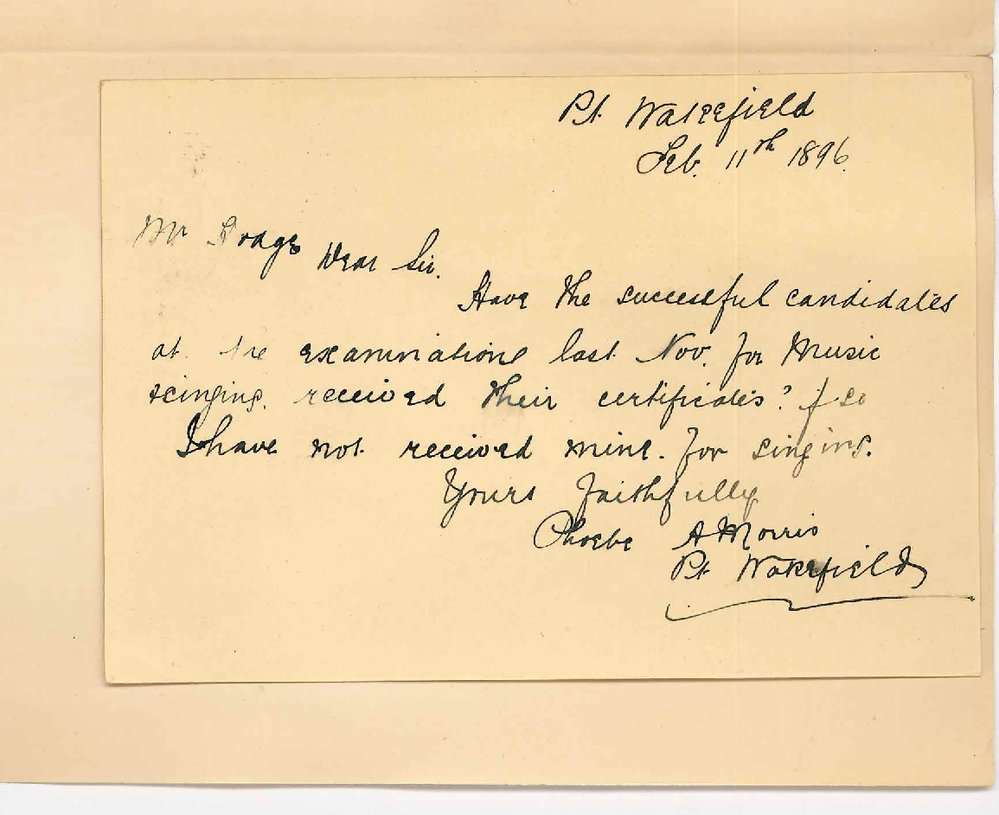 Pt. Wakefield
Feb. 11th 1896.
Mr Hodge
Dear Sir.
Have the successful candidates
at the examinations last Nov. for Music
scinging. received their certificates? if so
I have not received mine. for singing.
Yours faithfully
Phoebe A Morris
Pt Wakefield